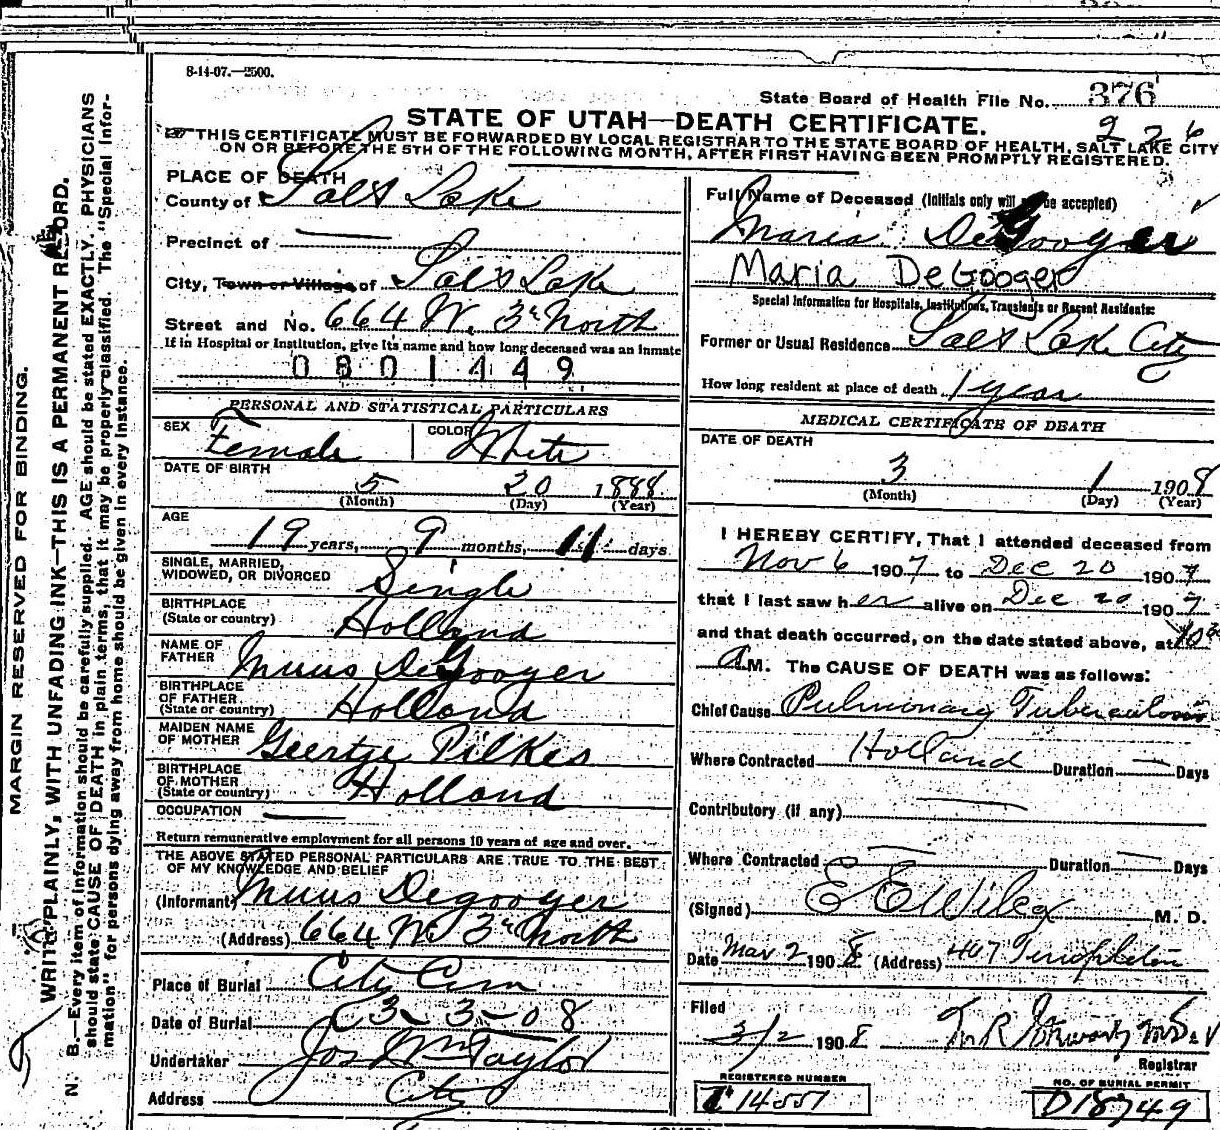 8-14-07.—2500.
State Board of Health File No. 376
STATE OF UTAH—DEATH CERTIFICATE.
226
THIS CERTIFICATE MUST BE FORWARDED BY LOCAL REGISTRAR TO THE STATE BOARD OF HEALTH, SALT LAKE CITY
ON OR BEFORE THE 5TH OF THE FOLLOWING MONTH, AFTER FIRST HAVING BEEN PROMPTLY REGISTERED.
MARGIN RESERVED FOR BINDING.
WRITE PLAINLY, WITH UNFADING INK—THIS IS A PERMANENT RECORD.
N. B.—Every item of information should be carefully supplied. AGE should be stated EXACTLY. PHYSICIANS
should state CAUSE OF DEATH in plain terms, that it may be properly classified. The "Special Infor-
mation" for persons dying away from home should be given in every instance.
PLACE OF DEATH
County of Salt Lake
Precinct of
City, Town or Village of Salt Lake
Street and No. 664 W. 3r North
If in Hospital or Institution, give its name and how long deceased was an inmate
0801449
PERSONAL AND STATISTICAL PARTICULARS
SEX Female COLOR White
DATE OF BIRTH
5 20 1888
(Month) (Day) (Year)
AGE
19 years, 9 months, 11 days
SINGLE, MARRIED,
WIDOWED, OR DIVORCED Single
BIRTHPLACE
(State or country) Holland
NAME OF
FATHER Muus DeGooyer
BIRTHPLACE
OF FATHER
(State or country) Holland
MAIDEN NAME
OF MOTHER Geertje Pilkes
BIRTHPLACE
OF MOTHER
(State or country) Holland
OCCUPATION
Return remunerative employment for all persons 10 years of age and over.
THE ABOVE STATED PERSONAL PARTICULARS ARE TRUE TO THE BEST
OF MY KNOWLEDGE AND BELIEF
(Informant) Muus Degooyer
(Address) 664 W. 3r North
Place of Burial City Cem
Date of Burial 3-3-08
Undertaker Jos Wm Taylor
Address City
Full Name of Deceased (Initials only will be accepted)
Maria DeGooyer
Maria DeGooger
Special Information for Hospitals, Institutions, Transients or Recent Residents:
Former or Usual Residence Salt Lake City
How long resident at place of death 1 year
MEDICAL CERTIFICATE OF DEATH
DATE OF DEATH
3 1 1908
(Month) (Day) (Year)
I HEREBY CERTIFY, That I attended deceased from
Nov 6 1907 to Dec 20 1907
that I last saw her alive on Dec 20 1907
and that death occurred, on the date stated above, at 10 30
A M. The CAUSE OF DEATH was as follows:
Chief Cause Pulmonary Tuberculosis
Where Contracted Holland Duration — Days
Contributory (if any)
Where Contracted Duration — Days
(Signed) E E Wilcox M. D.
Date Mar 2 1908 (Address) 407 Templeton
Filed
3/2 1908
Registrar
REGISTERED NUMBER
14551
NO. OF BURIAL PERMIT
D18749